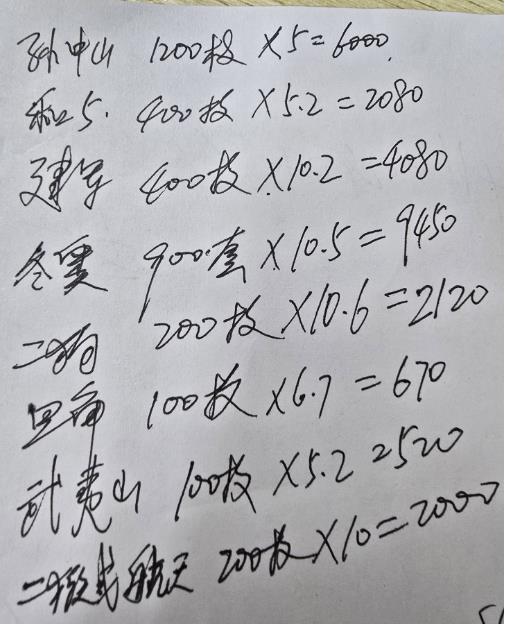 孙中山 1200枚×5=6000
和5. 400枚×5.2=2080
建军 400枚×10.2=4080
冬奥 900套×10.5=9450
二 200枚×10.6=2120
100枚×6.7=670
武夷山 100枚×5.2=520
二 航天 200枚×10=2000